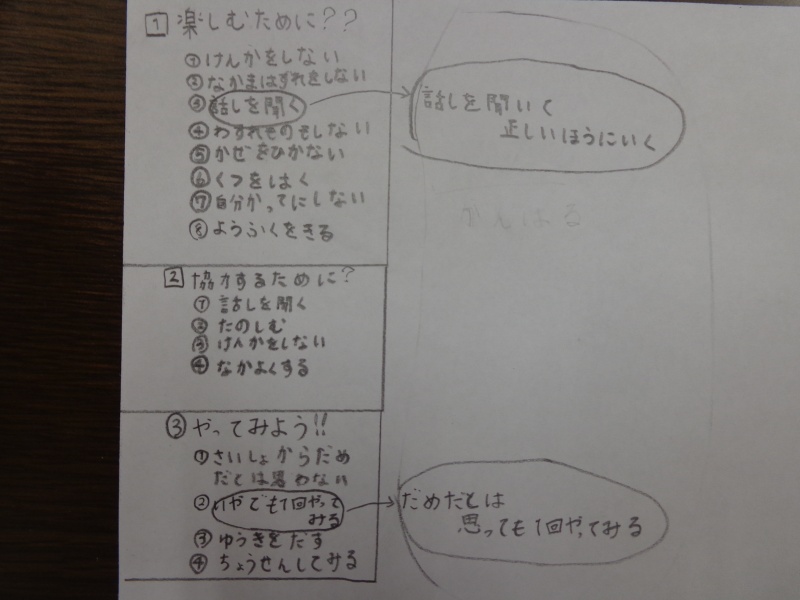 1 楽しむために??
①けんかをしない
②なかまはずれをしない
③話しを聞く
④わすれものもしない
⑤かぜをひかない
⑥くつをはく
⑦自分かってにしない
⑧ようふくをきる
話しを聞いく
正しいほうにいく
がんばる
2 協力するために?
①話しを聞く
②たのしむ
③けんかをしない
④なかよくする
③やってみよう!!
①さいしょからだめ
だとは思わない
②いやでも1回やって
みる
③ゆうきをだす
④ちょうせんしてみる
だめだとは
思っても1回やってみる